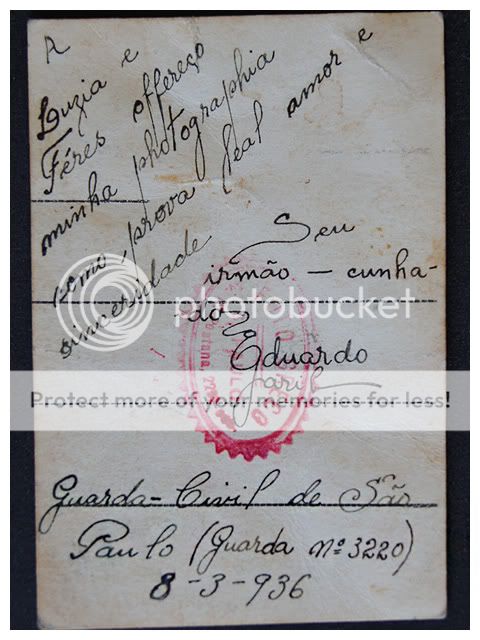 A
Luzia e
Féres offereço
minha photographia
como prova leal amor e
sinceridade
Seu
irmão — cunha-
do
Eduardo
Guarda-Civil de São
Paulo (Guarda nº 3220)
8-3-936
photobucket
Protect more of your memories for less!